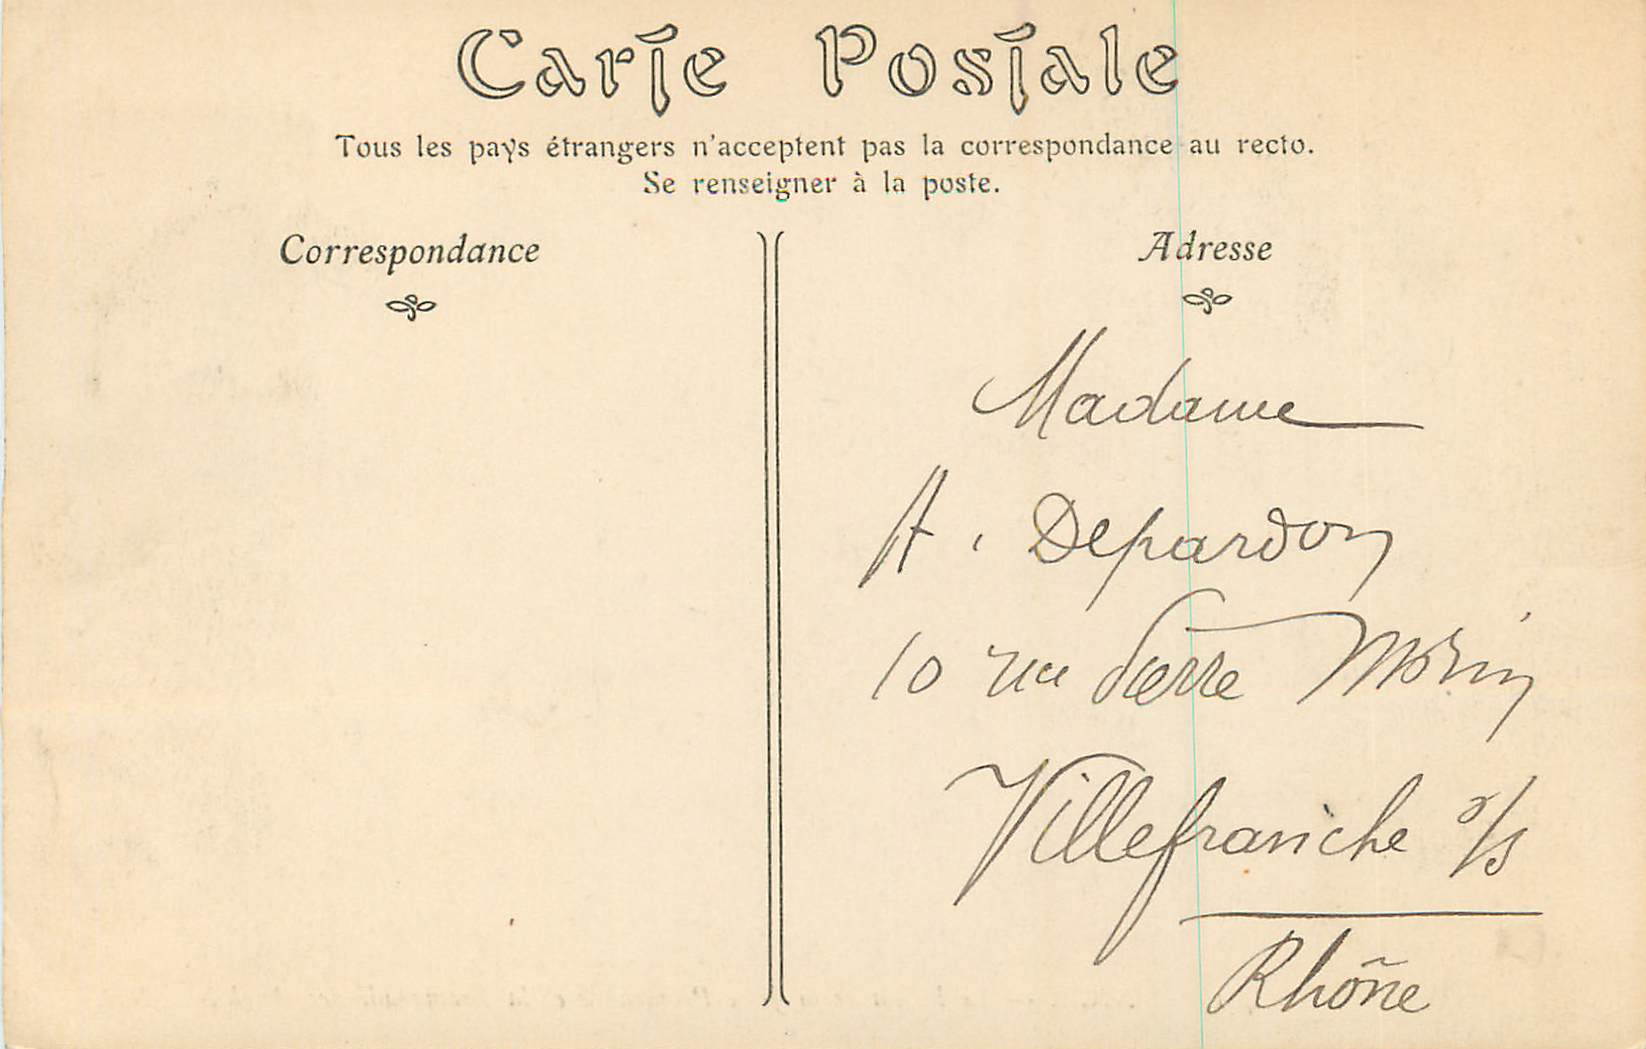 Carte Postale
Tous les pays étrangers n'acceptent pas la correspondance au recto.
Se renseigner à la poste.
Correspondance
Adresse
Madame
A. Depardon
10 rue Pierre Morin
Villefranche s/s
Rhône